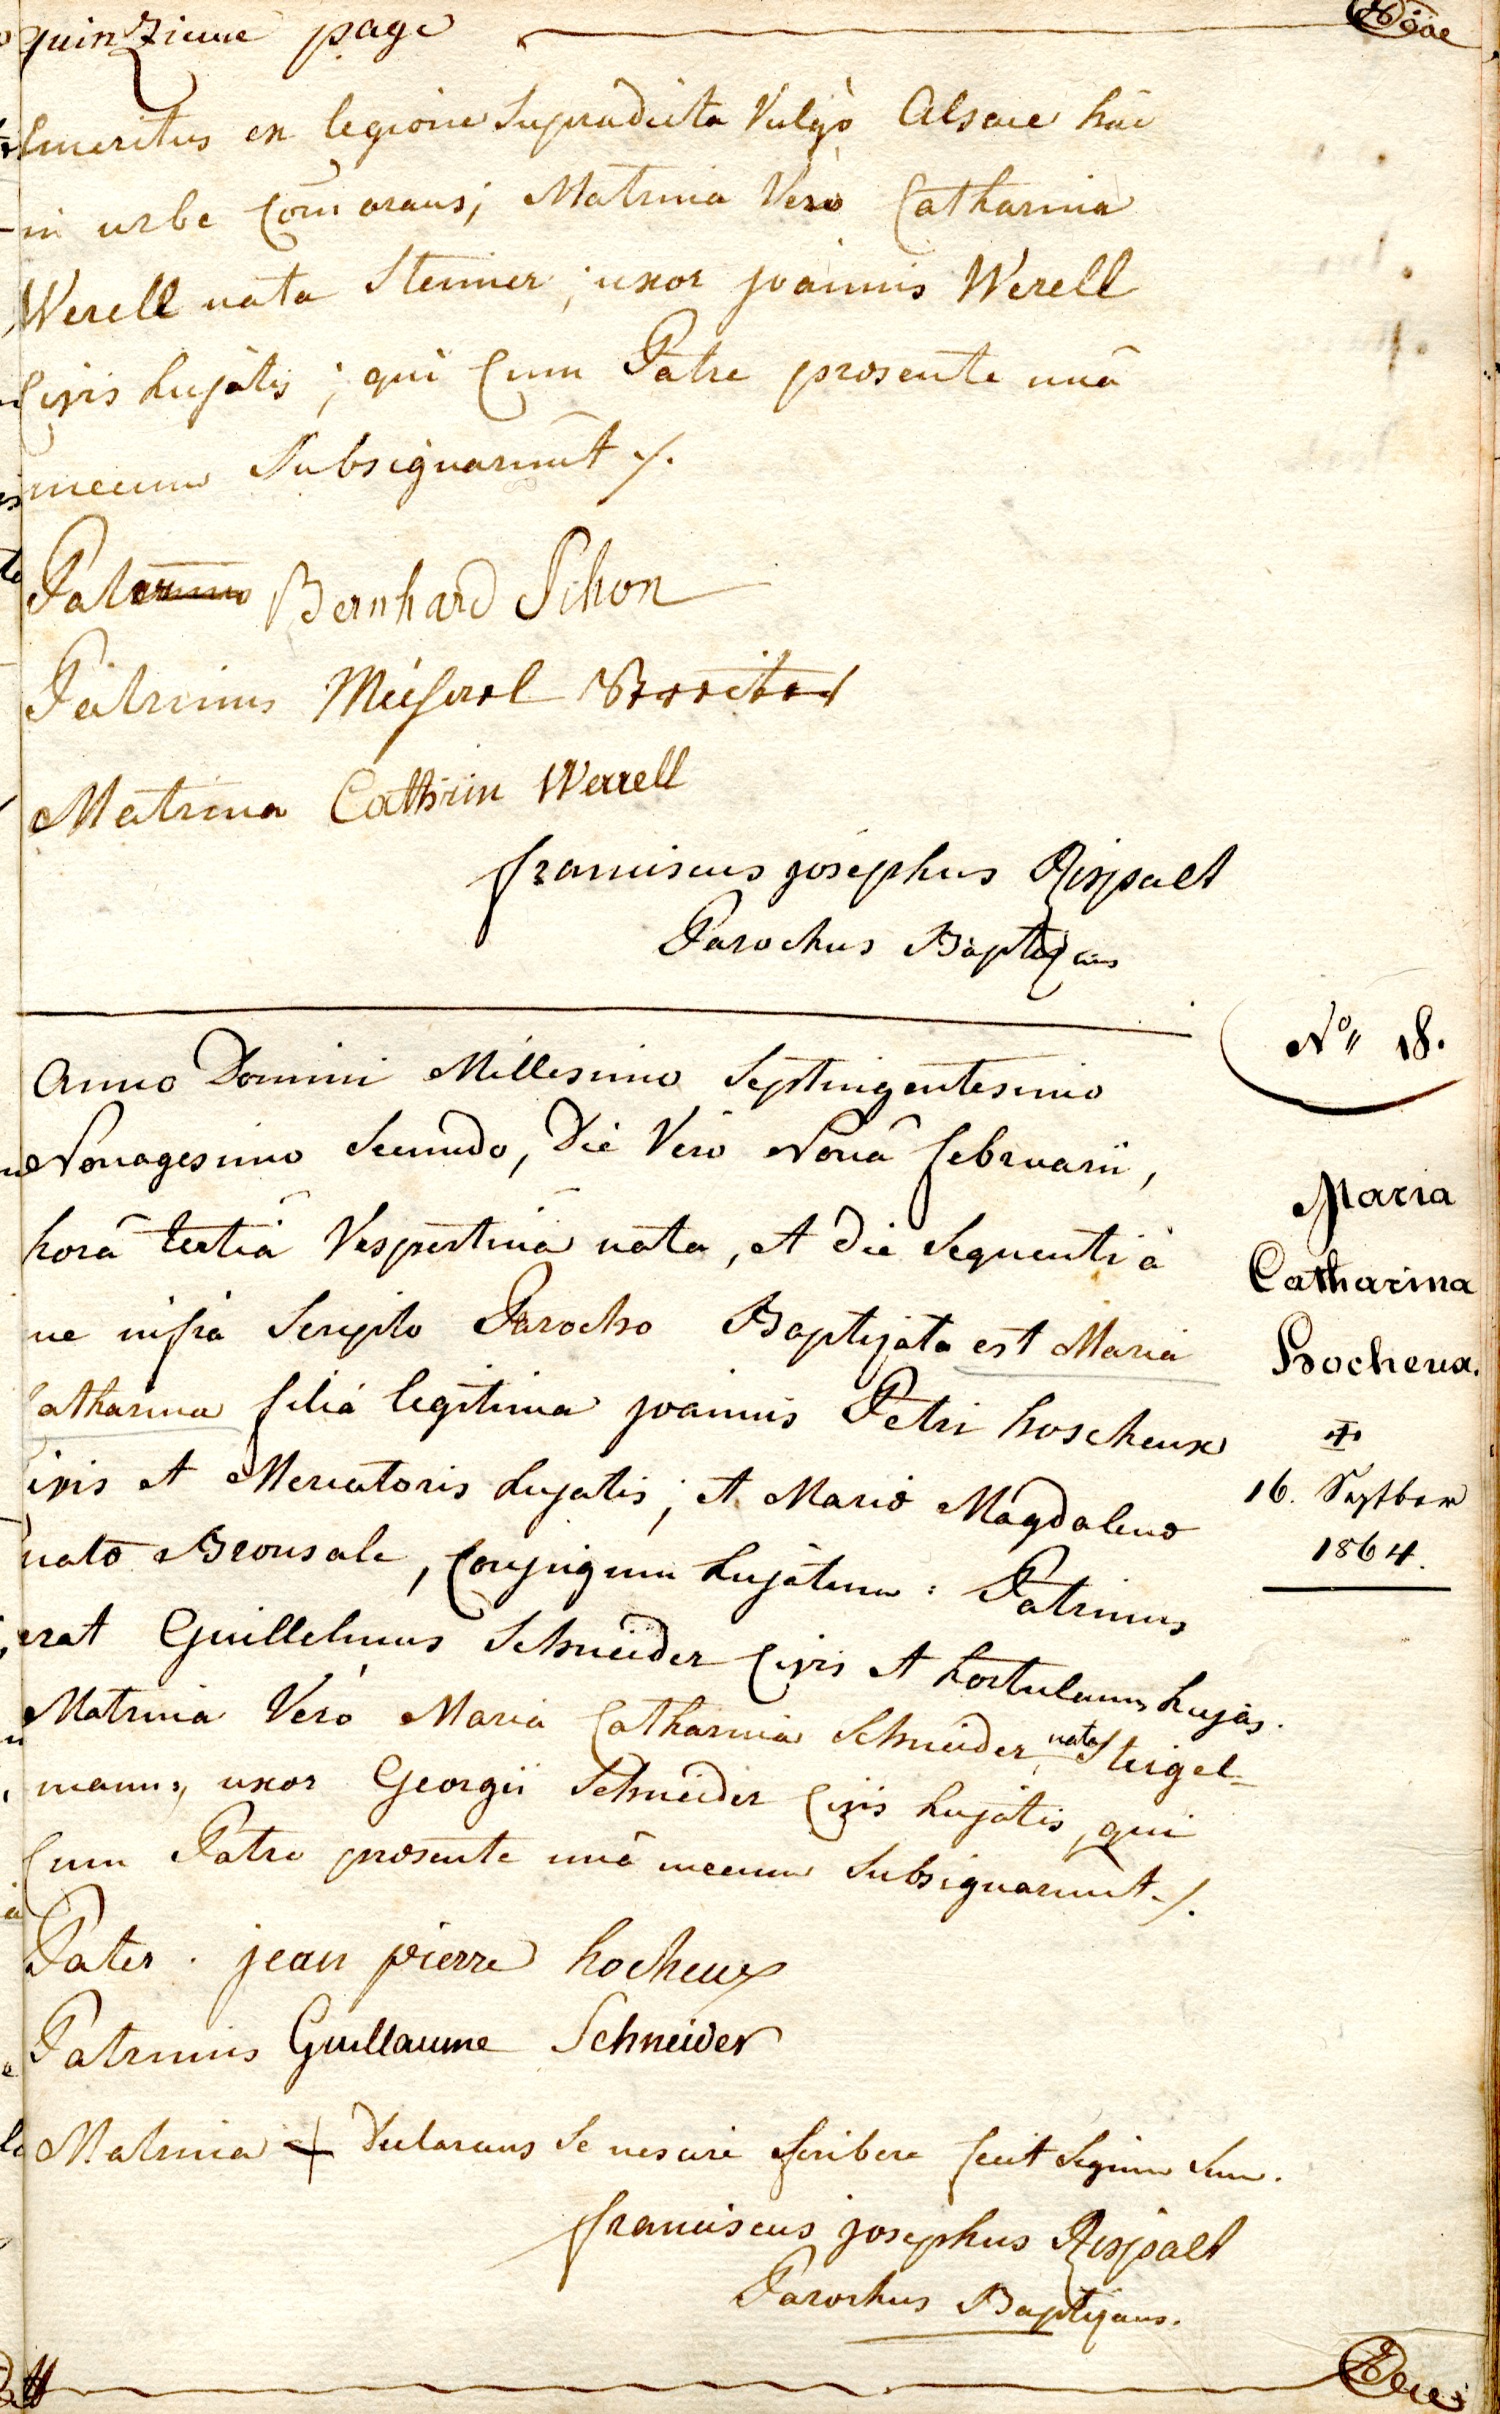 quinzieme page
Emeritus ex legione supradicta Vulgò Alsace hâc
in urbe Com̄orans; Matrina Verò Catharina
Werell nata Steiner; uxor joannis Werell
Civis hujàtis; qui Cum Patre presente unâ
mecum Subsignarunt ⁒
Pater Bernhard Schon
Patrinus
Matrina Cathrin Werrell
franciscus josephus Rispalt
Parochus Baptizans
N° 18.
Anno Domini Millesimo Septingentesimo
Nonagesimo Secundo, Die Verò Nonâ februarii,
horâ tertiâ Vespertinâ nata, et die Sequenti à
me infrà Scripto Parocho Baptizata est Maria
Catharina filia legitima joannis Petri hoscheux
Civis et Mercatoris hujatis; et Mariæ Magdalenæ
natæ Bronsale, Conjugum hujàtum: Patrinus
erat Guillelmus Schneider Civis et hortulanus hujàs.
Matrina Verò Maria Catharina Schneider, nata Steigel-
mann, uxor Georgii Schneider Civis hujàtis, qui
Cum Patre presente unâ mecum Subsignarunt ⁒
Maria
Catharina
Hocheux.
†
16. Septber
1864.
Pater. jean pierre hocheux
Patrinus Guillaume Schneider
Matrina + Declarans Se nescire Scribere fecit Signum Suum.
franciscus josephus Rispalt
Parochus Baptizans.